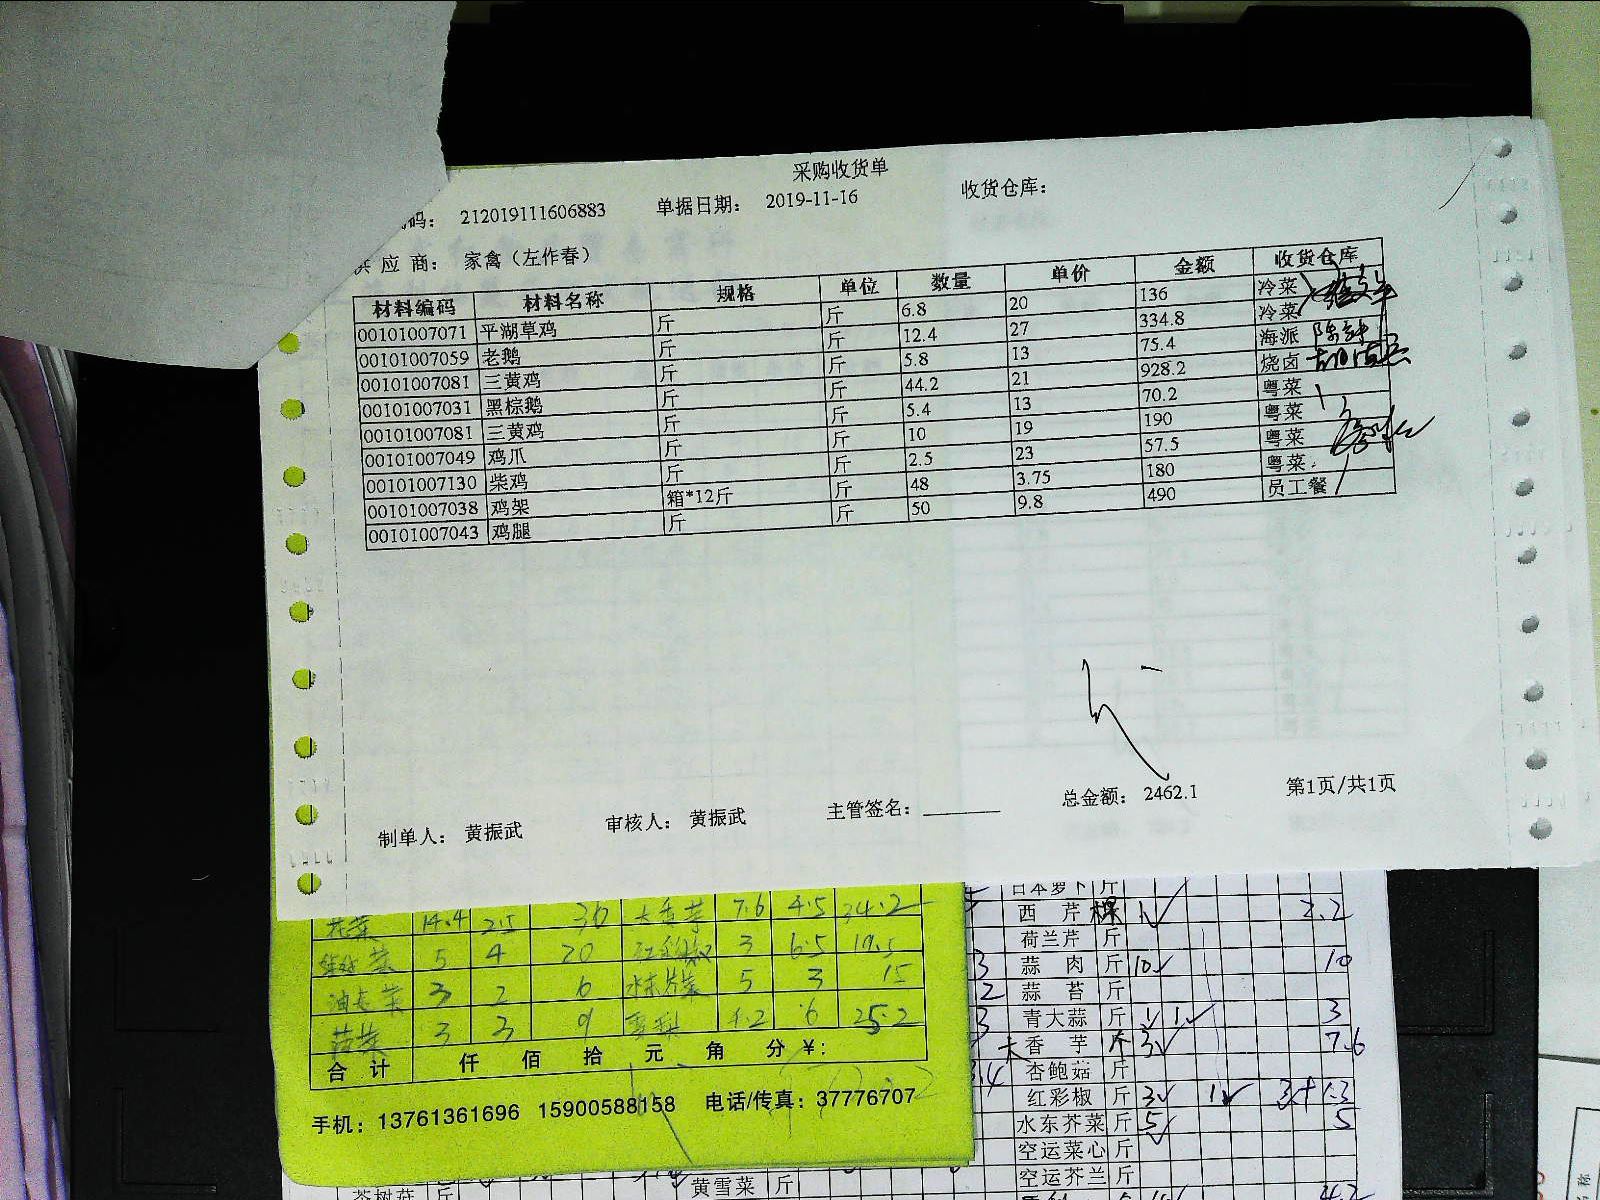 采购收货单
码： 212019111606883 单据日期： 2019-11-16 收货仓库：
供 应 商： 家禽（左作春）
材料编码 材料名称 规格 单位 数量 单价 金额 收货仓库
00101007071 平湖草鸡 斤 斤 6.8 20 136 冷菜
00101007059 老鹅 斤 斤 12.4 27 334.8 冷菜
00101007081 三黄鸡 斤 斤 5.8 13 75.4 海派
00101007031 黑棕鹅 斤 斤 44.2 21 928.2 烧卤
00101007081 三黄鸡 斤 斤 5.4 13 70.2 粤菜
00101007049 鸡爪 斤 斤 10 19 190 粤菜
00101007130 柴鸡 斤 斤 2.5 23 57.5 粤菜
00101007038 鸡架 箱*12斤 斤 48 3.75 180 粤菜
00101007043 鸡腿 斤 斤 50 9.8 490 员工餐
制单人： 黄振武 审核人： 黄振武 主管签名： 总金额： 2462.1 第1页/共1页
花菜 14.4 2.5 36 大香芋 7.6 4.5 34.2
5 4 20 红彩椒 3 6.5 19.5
油麦菜 3 2 6 水东芥菜 5 3 15
3 3 9 4.2 6 25.2
合 计 仟 佰 拾 元 角 分 ¥：
手机：13761361696 15900588158 电话/传真：37776707
日本萝卜 斤
西 芹 棵 1 2.2
荷兰芹 斤
蒜 肉 斤 10 10
蒜 苔 斤
青大蒜 斤 1 1 3
大香 芋 个 3 7.6
杏鲍菇 斤
红彩椒 斤 3 1 3+1.3
水东芥菜 斤 5 5
空运菜心 斤
空运芥兰 斤
茶树菇 斤 黄雪菜 斤